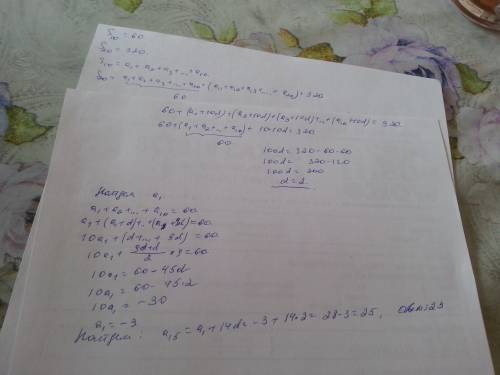 S₁₀ = 60
S₂₀ = 320.
S₁₀ = a₁ + a₂ + a₃ + ... + a₁₀.
S₂₀ = a₁ + a₂ + a₃ + ... + a₁₀ + (a₁₁ + a₁₂ + a₁₃ + ... + a₂₀) = 320
60
60 + (a₁ + 10d) + (a₂ + 10d) + (a₃ + 10d) + ... + (a₁₀ + 10d) = 320
60 + (a₁ + a₂ + ... + a₁₀) + 10·10d = 320
60
100d = 320 - 60 - 60
100d = 320 - 120
100d = 200
d = 2
Найдем a₁
a₁ + a₂ + ... + a₁₀ = 60
a₁ + (a₁ + d) + ... + (a₁ + 9d) = 60
10a₁ + (d + ... + 9d) = 60
10a₁ + (9d + d)/2 · 9 = 60
10a₁ = 60 - 45d
10a₁ = 60 - 45·2
10a₁ = -30
a₁ = -3
Найдем: a₁₅ = a₁ + 14d = -3 + 14·2 = 28 - 3 = 25, Ответ: 25